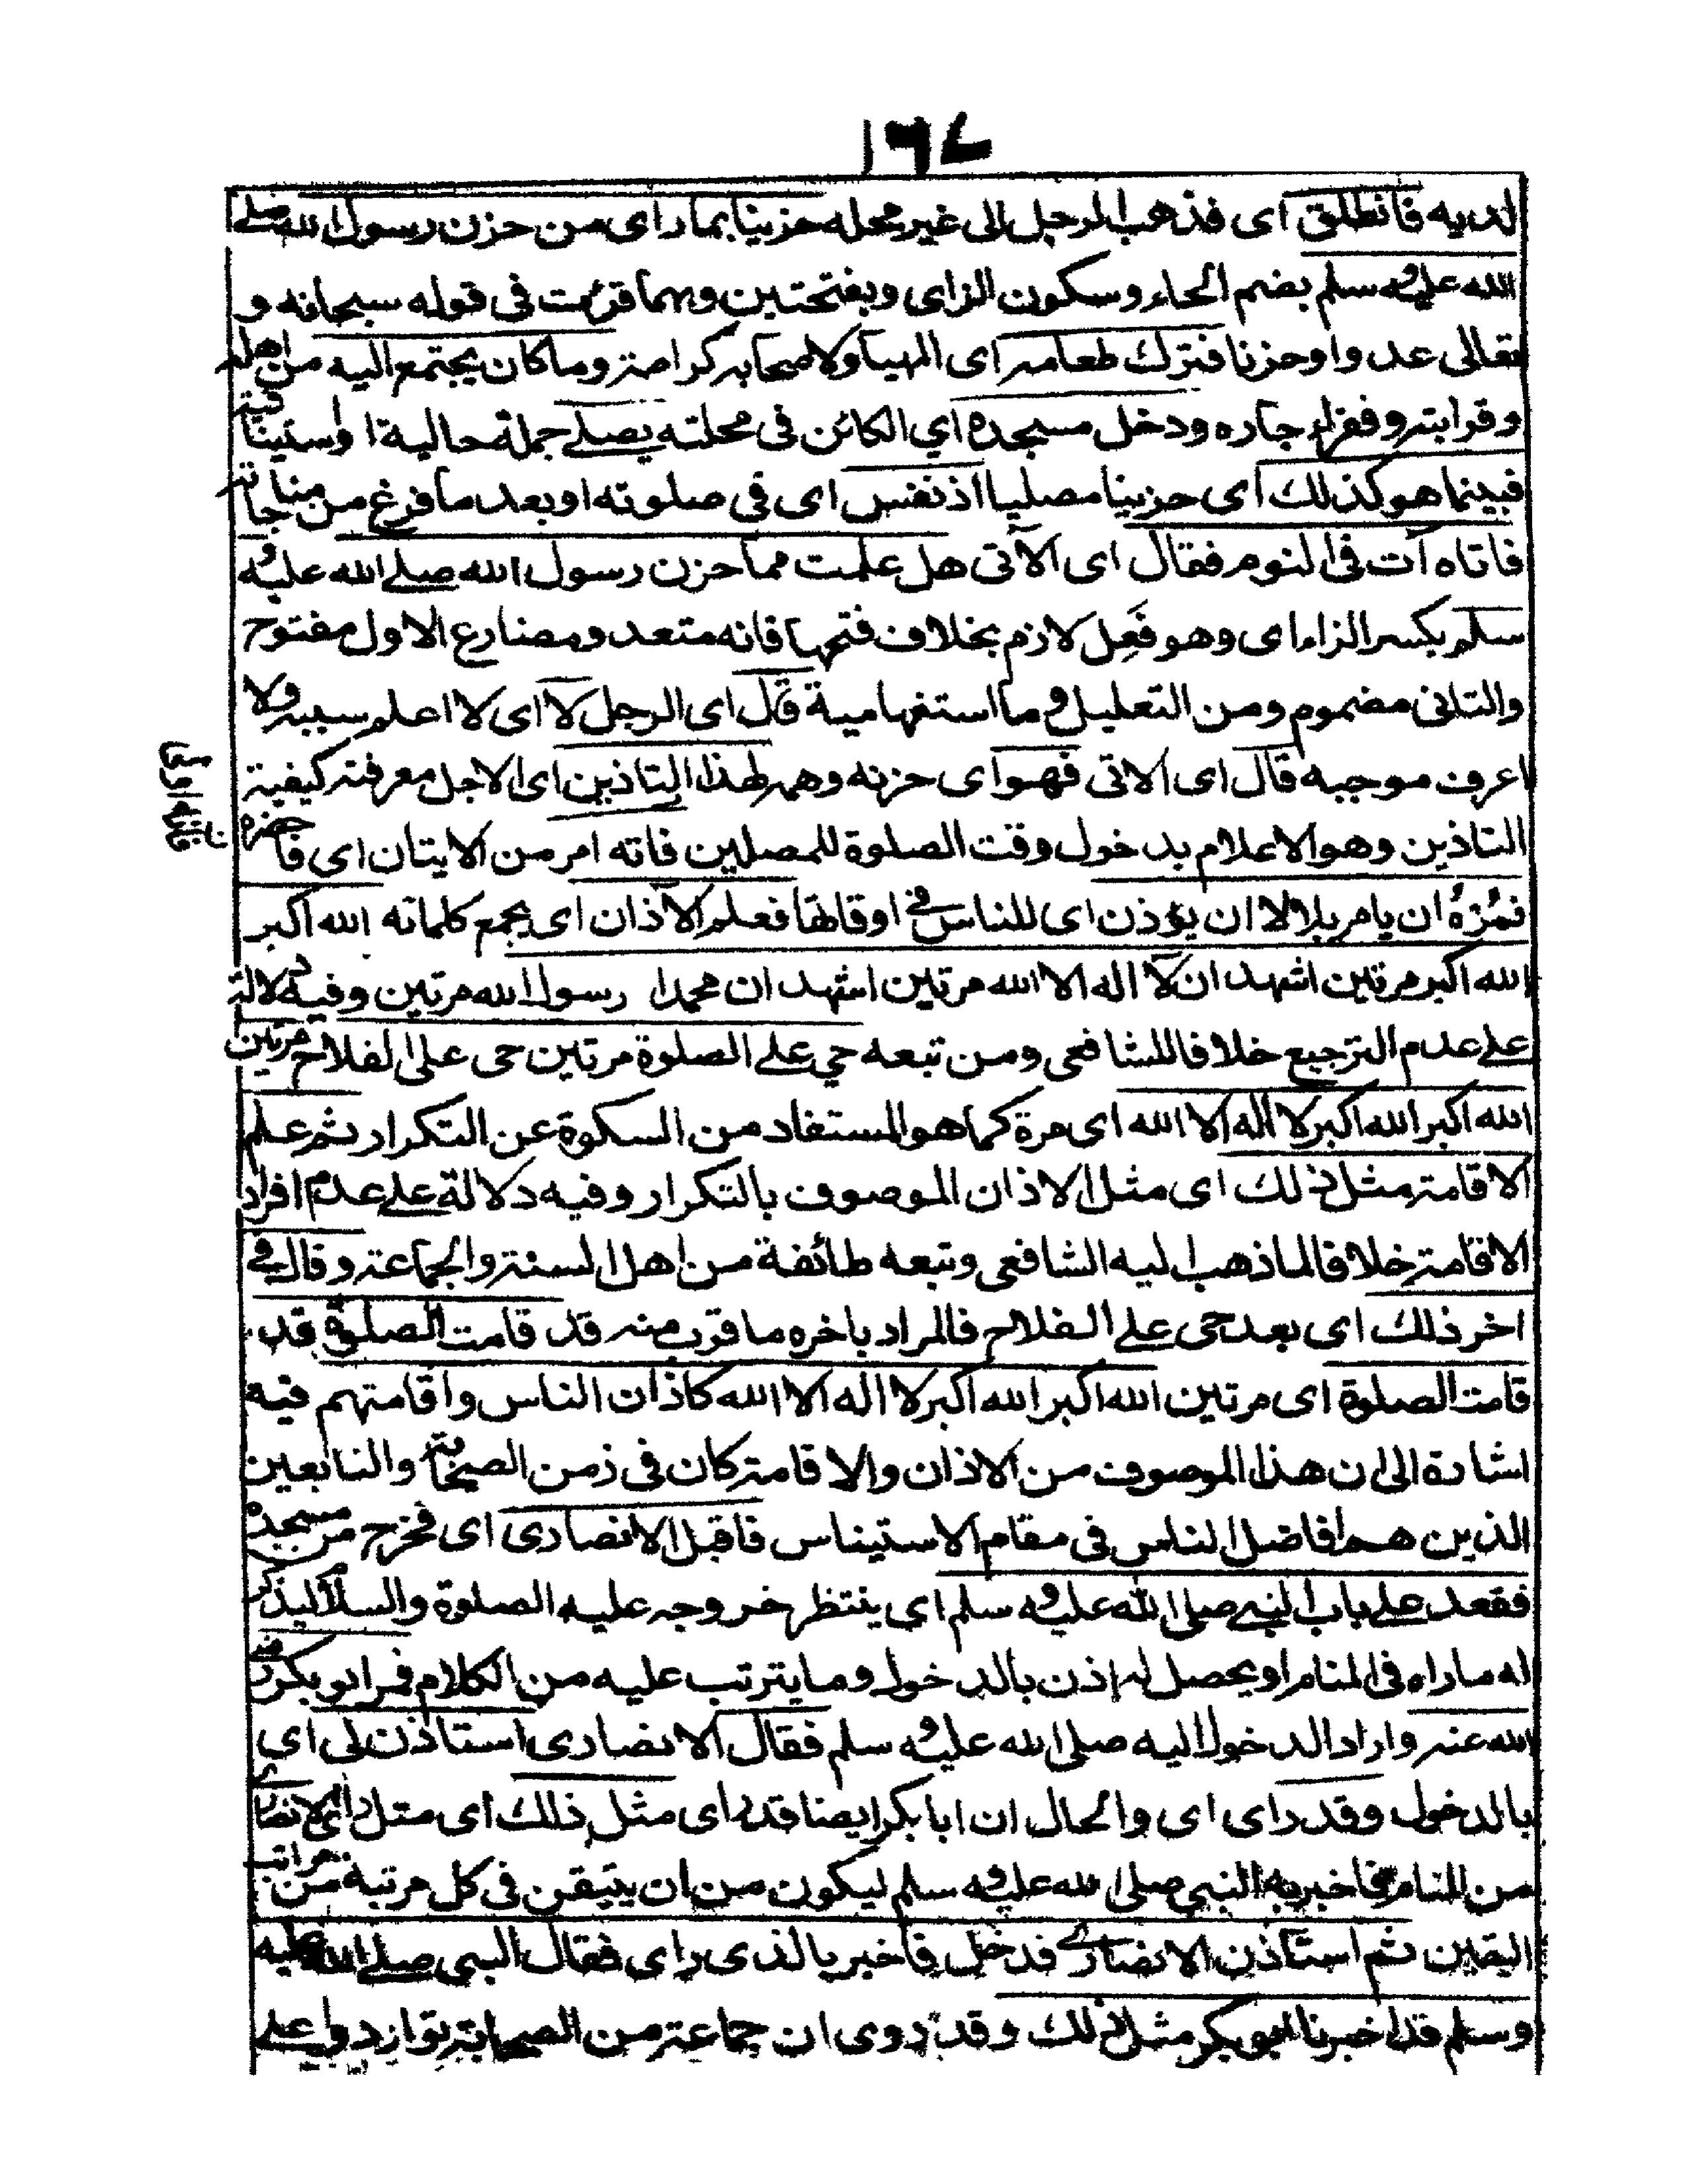 ١٦٧
لديه فانطلق اى فذهب الرجل الى غير محله حزينا بما راى من حزن رسول الله صلے
الله عليه وسلم بضم الحاء وسكون الزاى وبفتحتين وبهما قرئت فى قوله سبحانه و
تعالى عدوا وحزنا فترك طعامه اى المهيا ولاصحابه كرامته وما كان يجتمع اليه من اهله
وقرابته وفقراء جاره ودخل مسجده اي الكائن فى محلته يصلے جملة حالية او استينافية
فبينما هو كذلك اى حزينا مصليا اذ نعس اى فى صلوته او بعد ما فرغ من مناجاته
فاتاه آت فى النوم فقال اى الآتى هل علمت مما حزن رسول الله صلے الله عليه و
سلم بكسر الزاء اى وهو فَعِل لازم بخلاف فتحها فانه متعد ومضارع الاول مفتوح
والثانى مضموم ومن التعليل وما استفهامية قال اى الرجل لا اى لا اعلم سببه ولا
اعرف موجبه قال اى الاتى فهو اى حزنه وهمه لهذا التاذين اى لاجل معرفته كيفية
التاذين وهو الاعلام بدخول وقت الصلوة للمصلين فاته امر من الايتان اى فا حضره
فمُرْهُ ان يامر بلالا ان يؤذن اى للناس فے اوقاتها فعلمه الآذان اى بجمع كلماته الله اكبر
الله اكبر مرتين اشهد ان لا اله الا الله مرتين اشهد ان محمدا رسول الله مرتين وفيه دلالة
علے عدم الترجيع خلافا للشافعى ومن تبعه حي علے الصلوة مرتين حى على الفلاح مرتين
الله اكبر الله اكبر لا اله الا الله اى مرة كما هو المستفاد من السكوة عن التكرار ثم علمه
الاقامة مثل ذلك اى مثل الاذان الموصوف بالتكرار وفيه دلالة علے عدم افراد
الاقامة خلافا لما ذهب اليه الشافعى وتبعه طائفة من اهل السنة والجماعة وقال فے
اخر ذلك اى بعد حى علے الفلاح فالمراد باخره ما قرب منه قد قامت الصلوة قد
قامت الصلوة اى مرتين الله اكبر الله اكبر لا اله الا الله كاذان الناس واقامتهم فيه
اشارة الى ان هذا الموصوف من الاذان والاقامة كان فى زمن الصحابة والتابعين
الذين هم افاضل الناس فى مقام الاستيناس فاقبل الانصارى اى فخرج من مسجده
فقعد علے باب النبے صلى الله عليه وسلم اى ينتظر خروجه عليه الصلوة والسلام ليذكر
له ما راه فى المنام او يحصل له اذن بالدخول وما يترتب عليه من الكلام فمر ابو بكر رضے
الله عنه واراد الدخول اليه صلى الله عليه وسلم فقال الانصارى استاذن لى اى
بالدخول وقد راى اى والحال ان ابا بكر ايضا قد راى مثل ذلك اى مثل راى الانصارى
من المنام فاخبر به النبي صلى الله عليه وسلم ليكون من ان يتيقن فى كل مرتبة من مراتب
اليقين ثم استاذن الانصارے فدخل فاخبر بالذى راى فقال النبى صلے الله عليه
وسلم قد اخبرنا ابو بكر مثل ذلك وقد روى ان جماعة من الصحابة تواردوا علے